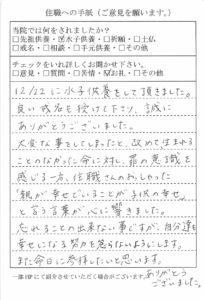 住職への手紙（ご意見を願います。）
当院では何をされましたか？
□先祖供養・☑水子供養・□祈願・□土仏
□戒名・□相談・□手元供養・□その他
チェックをいれ詳しくお聞かせ下さい。
□意見・□質問・□苦情・☑お礼・□その他
12/22に水子供養をして頂きました。
良い戒名を授けて下さり、誠に
ありがとうございました。
大変な事をしてしまったと、改めて生まれる
ことのなかった命に対し、罪の意識を
感じる一方、住職さんのおっしゃった
「親が幸せでいることが子供の幸せ」
と言う言葉が心に響きました。
忘れることの出来ない事ですが、自分達も
幸せになる努力を怠らないようにします。
また命日に参拝したいと思います。
ありがとう
ございました。
一部HPにて紹介させていただく場合がございます。